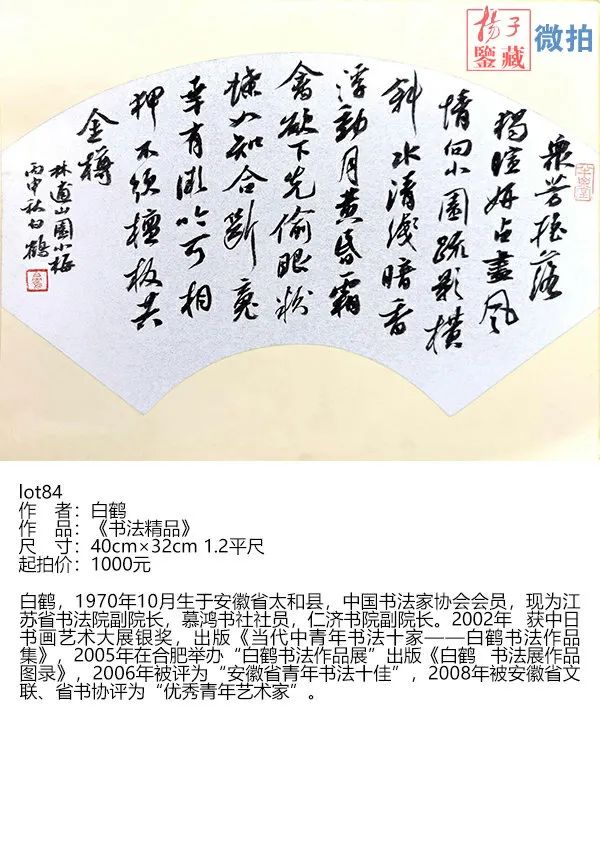 楊子
鑒藏
微拍
眾芳摇落
獨暄妍占盡風
情向小園疏影橫
斜水清淺暗香
浮動月黄昏霜
禽欲下先偷眼粉
蝶如知合断魂
幸有微吟可相
狎不須檀板共
金樽
林逋山園小梅
丙申秋白鶴
lot84
作　者：白鹤
作　品：《书法精品》
尺　寸：40cm×32cm 1.2平尺
起拍价：1000元
白鹤，1970年10月生于安徽省太和县，中国书法家协会会员，现为江
苏省书法院副院长，慕鸿书社社员，仁济书院副院长。2002年 获中日
书画艺术大展银奖，出版《当代中青年书法十家——白鹤书法作品
集》，2005年在合肥举办“白鹤书法作品展”出版《白鹤 书法展作品
图录》，2006年被评为“安徽省青年书法十佳”，2008年被安徽省文
联、省书协评为“优秀青年艺术家”。